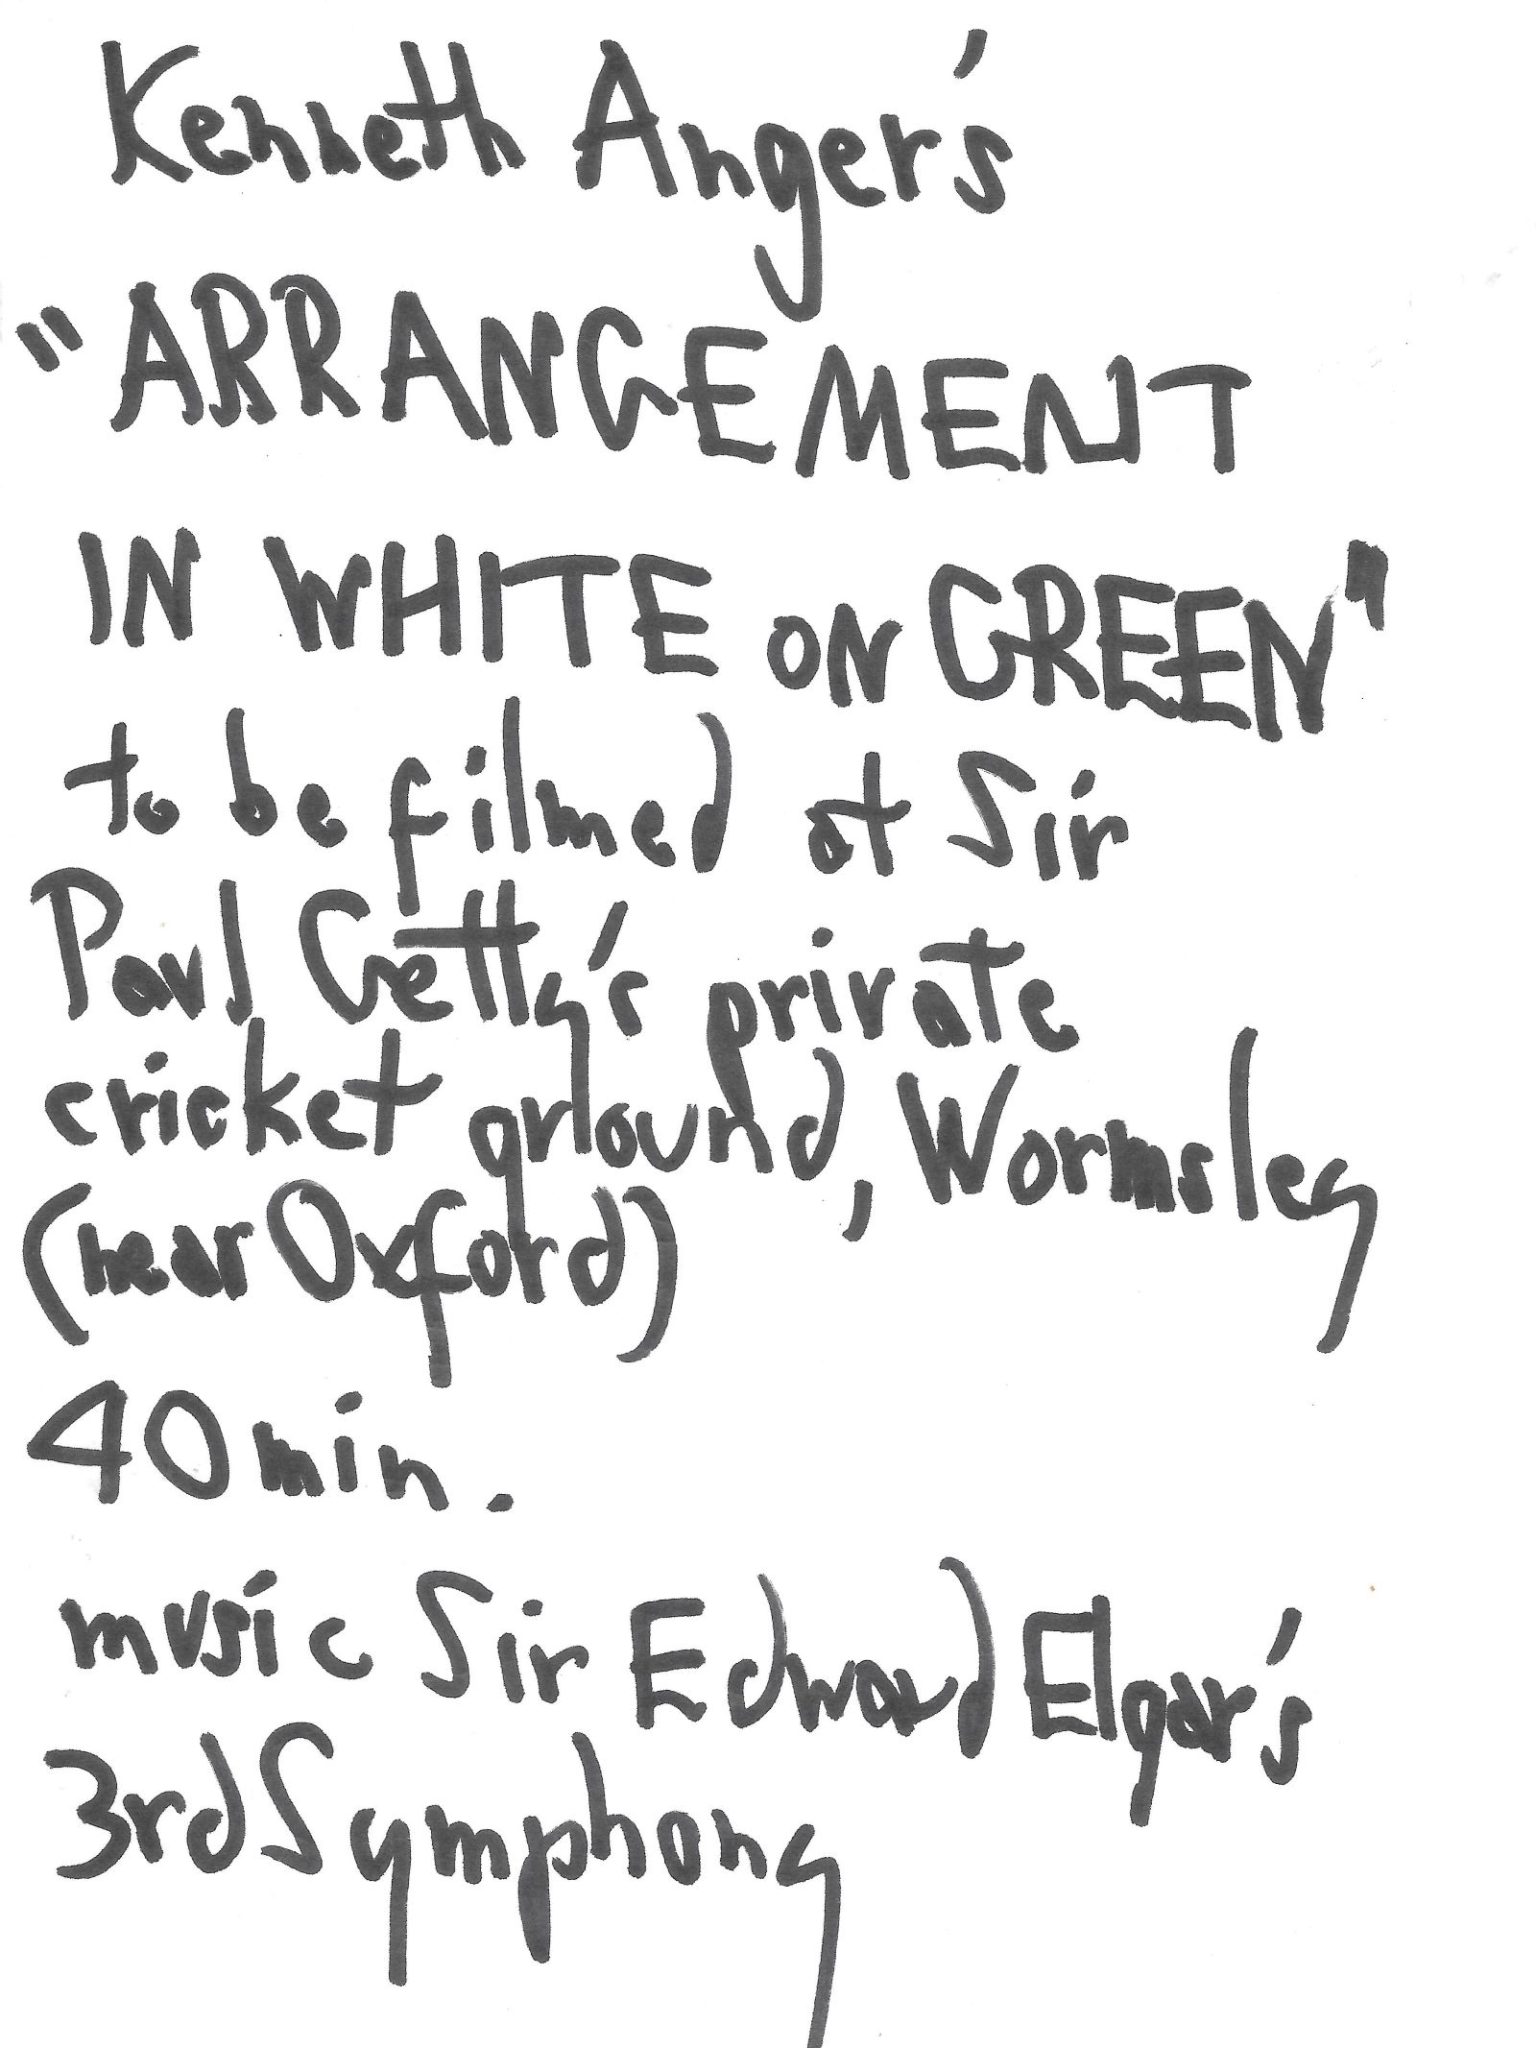 Kenneth Anger's
"ARRANGEMENT
IN WHITE ON GREEN"
to be filmed at Sir
Paul Getty's private
cricket ground, Wormsley
(near Oxford)
40 min.
music Sir Edward Elgar's
3rd Symphony